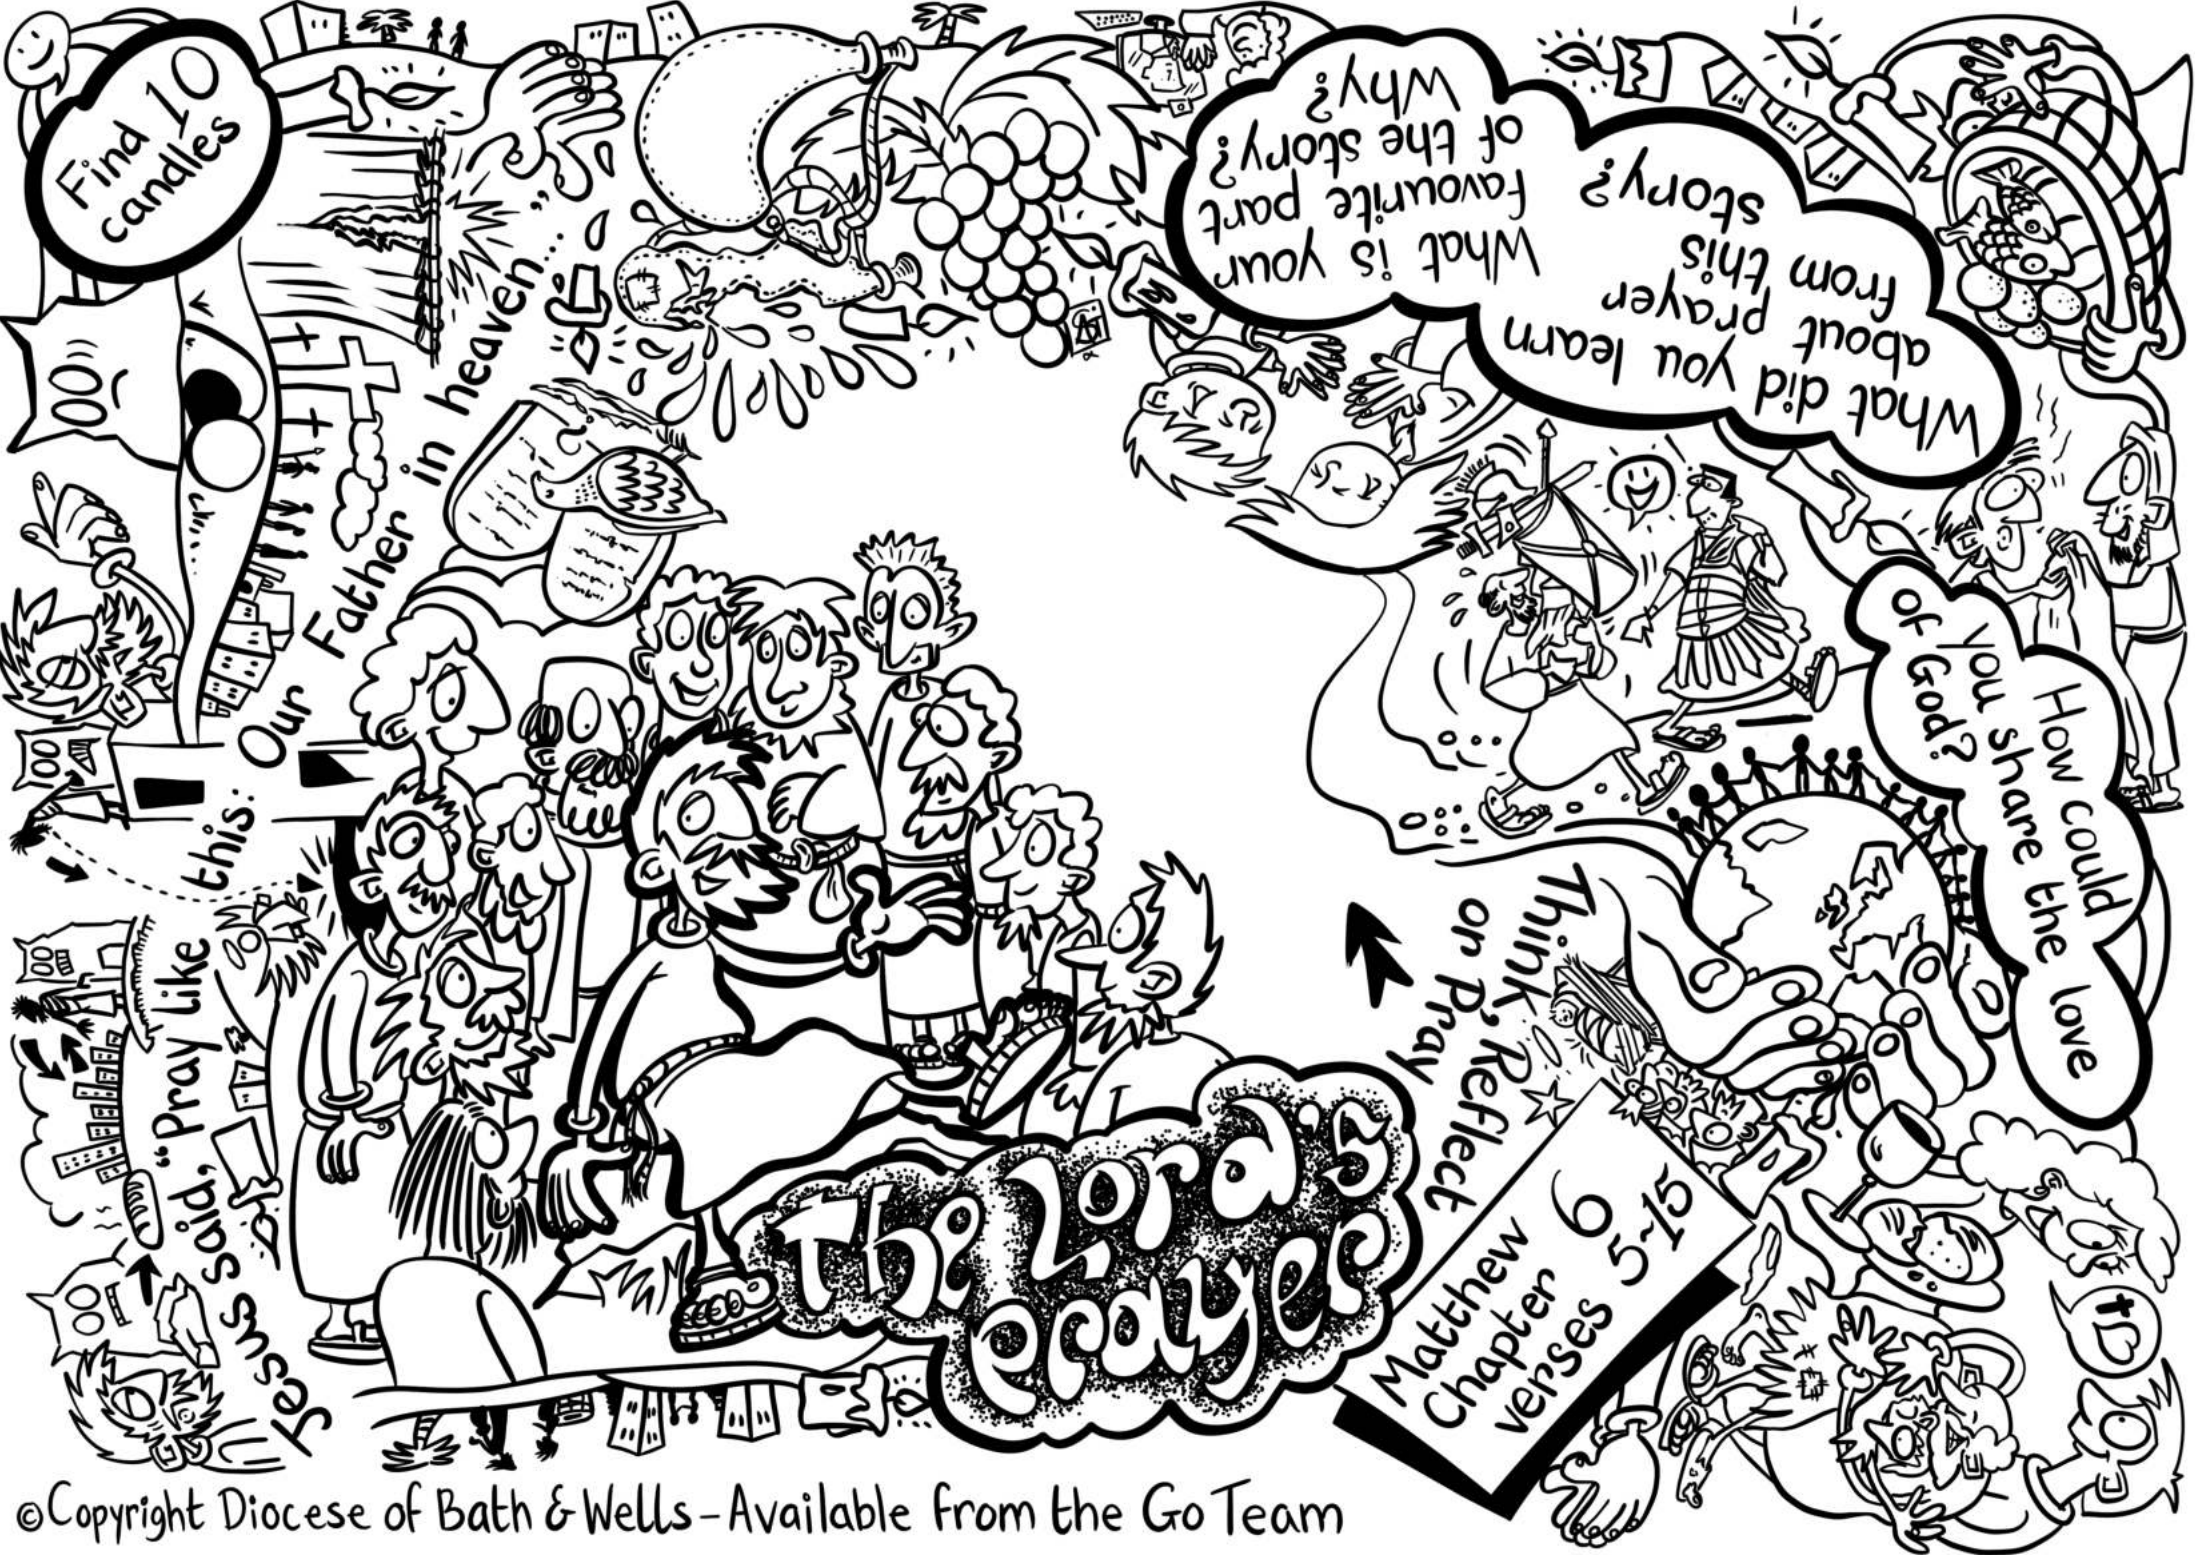 Find 10
candles
Jesus said, "Pray like this: Our Father in heaven..."
What is your
favourite part
of the story?
Why?
What did you learn
about prayer
from this
story?
How could
you share the love
of God?
Think, Reflect
or Pray
The Lord's
Prayer
Matthew
Chapter 6
verses 5-15
©Copyright Diocese of Bath & Wells - Available from the Go Team